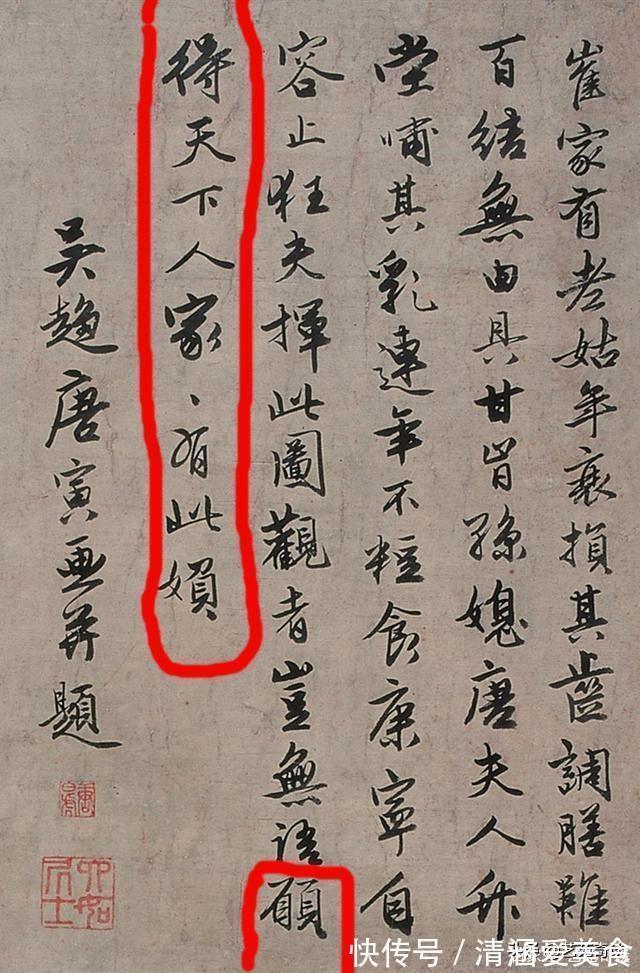 崔家有老姑年衰損其齒調膳難
百結無由具甘旨孫媳唐夫人升
堂哺其乳連年不粒食康寧自
容止狂夫揮此圖觀者豈無語願
得天下人家〻有此媍
吳趨唐寅画并題
六如居士
快传号／清涵爱美食